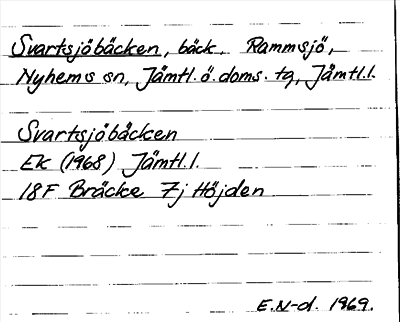 Svartsjöbäcken, bäck. Rammsjö,
Nyhems sn, Jämtl. ö. doms. tg, Jämtl.l.
Svartsjöbäcken
Ek (1968) Jämtl.l.
18F Bräcke 7j Höjden
E.N-d. 1969.